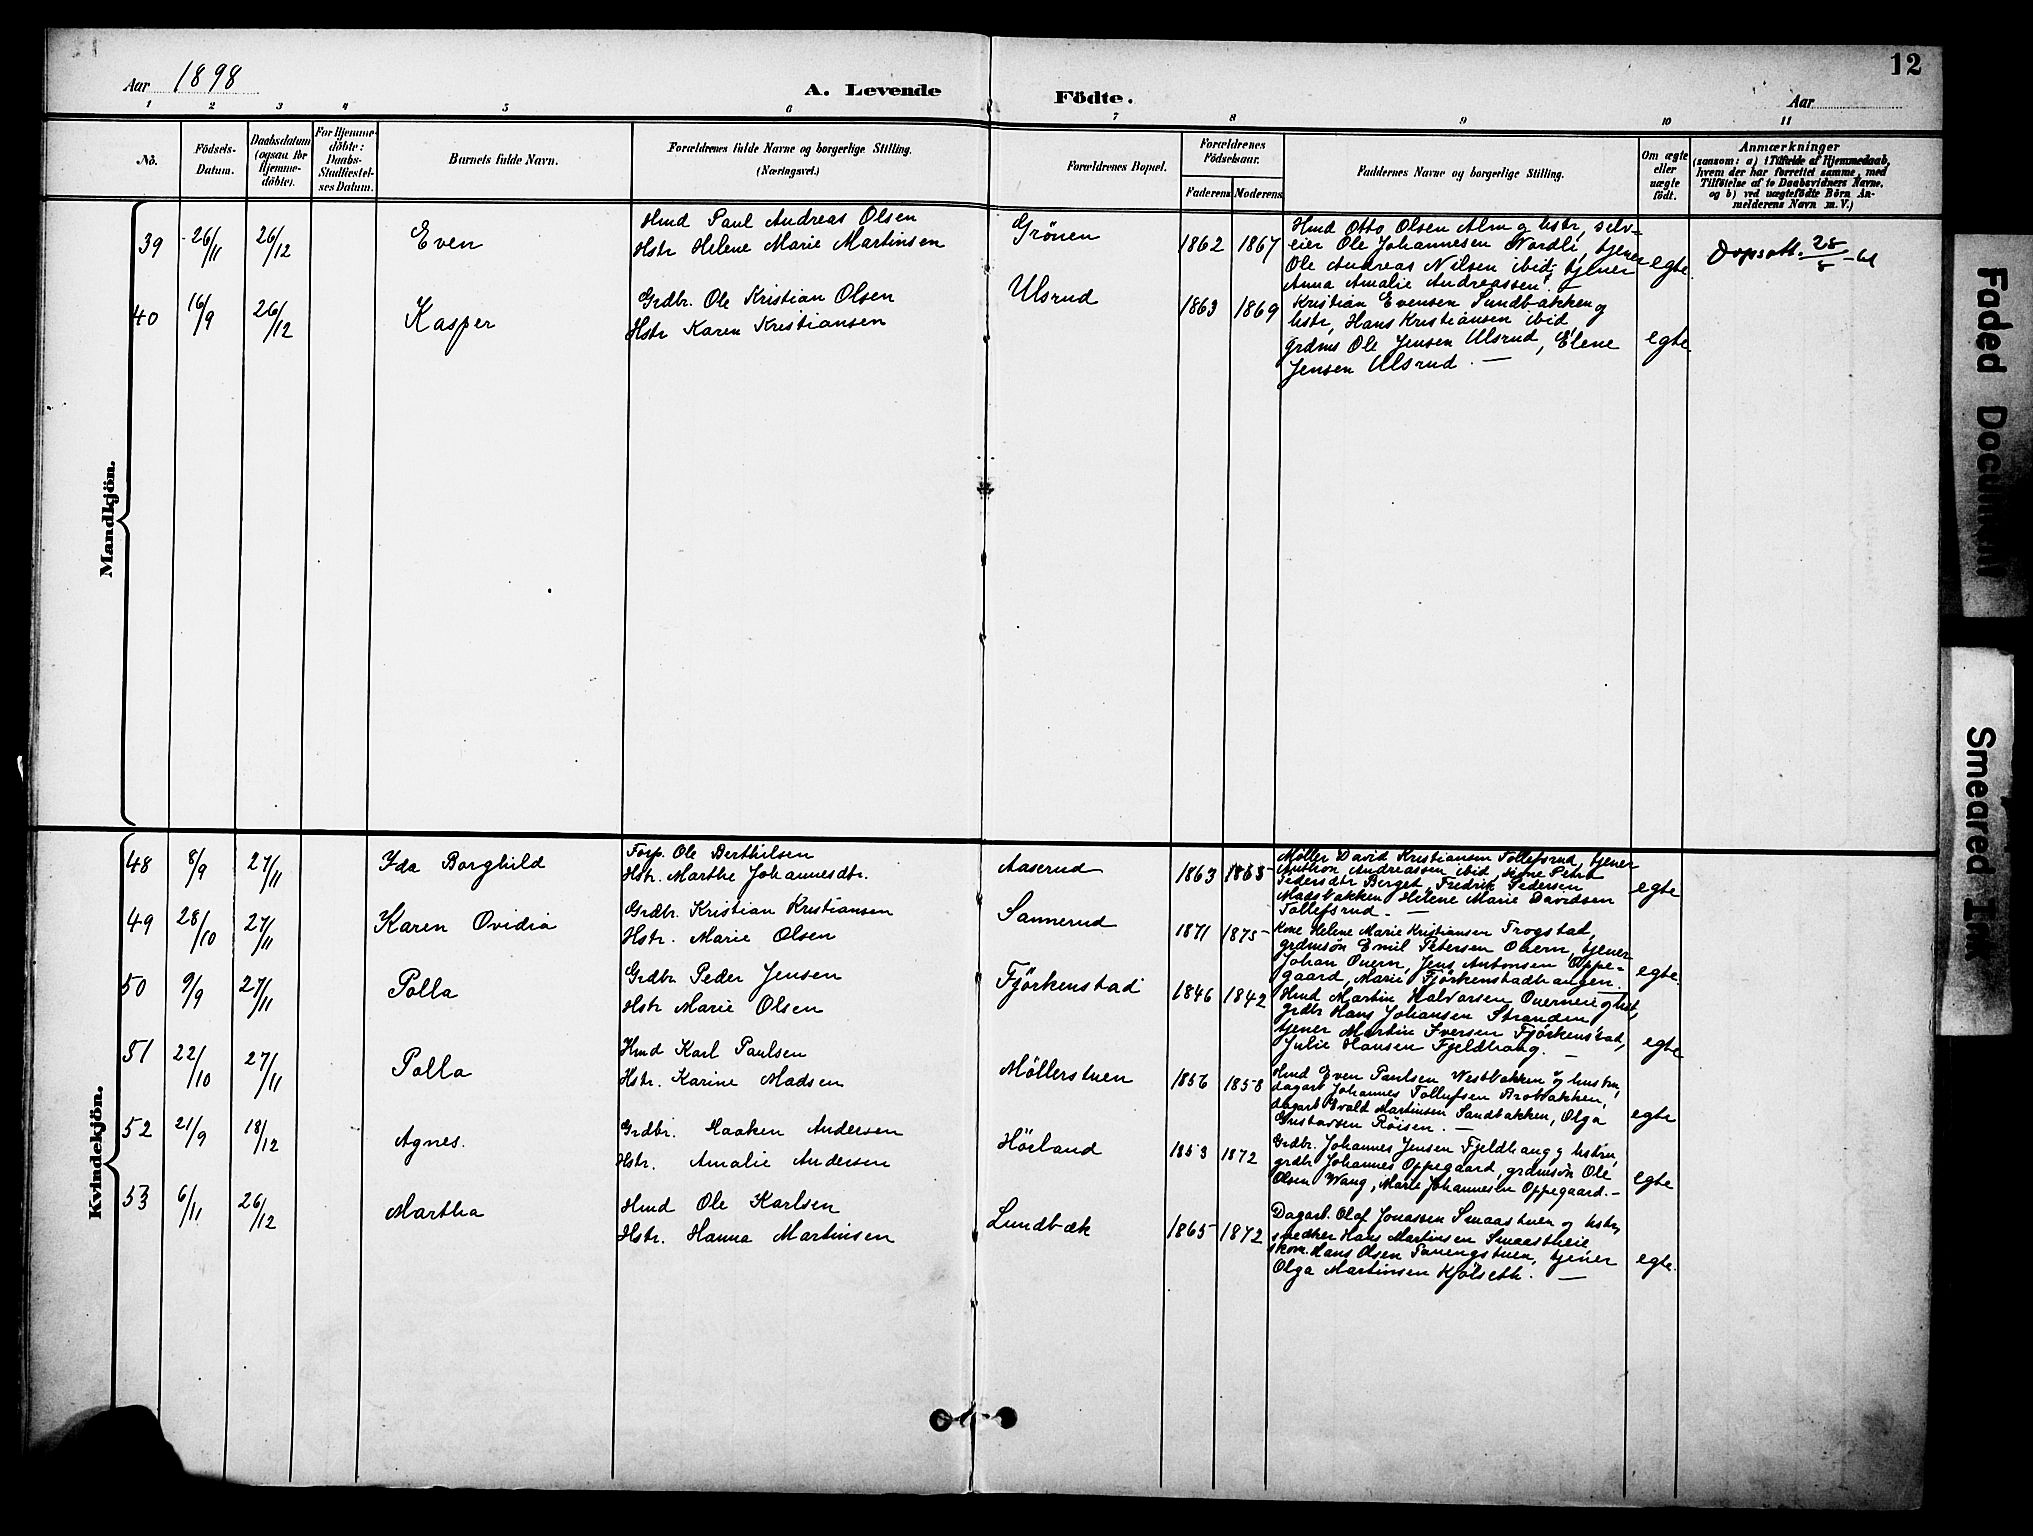 12
Aar 1898
A. Levende
Födte.
Aar
1 2 3 4 5 6 7 8 9 10 11
No.
Födsels-
Datum.
Daabsdatum
(ogsaa for
Hjemme-
döbte).
For Hjemme-
döbte:
Daabs-
Stadfæstel-
ses Datum.
Barnets fulde Navn.
Forældrenes fulde Navne og borgerlige Stilling.
(Næringsvei.)
Forældrenes Bopæl.
Forældrenes
Födselsaar.
Faderens Moderens
Faddernes Navne og borgerlige Stilling.
Om ægte
eller
uægte
födt.
Anmærkninger
(saasom: a) i Tilfælde af Hjemmedaab,
hvem der har forrettet samme, med
Tilföielse af to Daabsvidners Navne,
og b) ved uægtefödte Börn An-
melderens Navn m. V.)
Mandkjön.
39 26/11 26/12 Even
Hmd Paul Andreas Olsen
Hstr Helene Marie Martinsen
Grönen 1862 1867
Hmd Otto Olsen Alm og hstr, selv-
eier Ole Johannesen Nordli, tjener
Ole Andreas Nilsen ibid, tjener
Anna Amalie Andreassen. —
egte
Dopsatt. 28/8 - 61
40 16/9 26/12 Kasper
Grdbr. Ole Kristian Olsen
Hstr Karen Kristiansen
Ulsrud 1863 1869
Kristian Evensen Sundbakken og
hstr, Hans Kristiansen ibid,
grdms Ole Jensen Ulsrud, Elene
Jensen Ulsrud. —
egte.
Kvindekjön.
48 8/9 27/11 Ida Borghild
Forp. Ole Berthilsen
Hstr. Marthe Johannesdtr.
Aaserud 1863 1865
Möller David Kristiansen Tollefsrud, tjener
Anthon Andreassen ibid, Petra
Pedersdtr Berget, Fredrik Pedersen
Madsbakken Helene Marie Davidsen
Tollefsrud. —
egte
49 28/10 27/11 Karen Ovidia
Grdbr. Kristian Kristiansen
Hstr. Marie Olsen
Sannerud 1871 1875
Kone Helene Marie Kristiansen Trogstad,
grdmsön Emil Petersen Ouern, tjener
Johan Ouern, Jens Antonsen Oppe-
gaard, Marie Fjörkenstadhaugen.
egte.
50 9/9 27/11 Polla
Grdbr Peder Jensen
Hstr Marie Olsen
Fjörkenstad 1846 1842
Hmd Martin Halvorsen Ouerneie og hst,
grdbr Hans Johansen Stranden
tjener Martin Iversen Fjörkenstad,
Julie Hansen Fjeldhaug. —
egte
51 22/10 27/11 Polla
Hmd Karl Paulsen
Hstr. Karine Madsen
Möllerstuen 1856 1858
Hmd Even Paulsen Westbakken og hustru,
dagarb Johannes Tollefsen Brobakken,
dagarb Evald Martinsen Sandbakken, Olga
Gustavsen Röisen. —
egte
52 21/9 18/12 Agnes.
Grdbr. Haaken Andersen
Hstr. Amalie Andersen
Höiland 1853 1872
Grdbr. Johannes Jensen Fjeldhaug og hstru,
grdbr Johannes Oppegaard, grdmsön Ole
Olsen Wang, Marte Johannesen Oppegaard. —
egte
53 6/11 26/12 Martha
Hmd Ole Karlsen
Hstr. Hanna Martinsen
Lundbæk 1865 1872
Dagarb. Olaf Jonassen Smaastuen og hstr,
snedker Hans Martinsen
skom. Hans Olsen tjener
Olga Martinsen Kjölseth. —
egte.
Faded Document
Smeared Ink